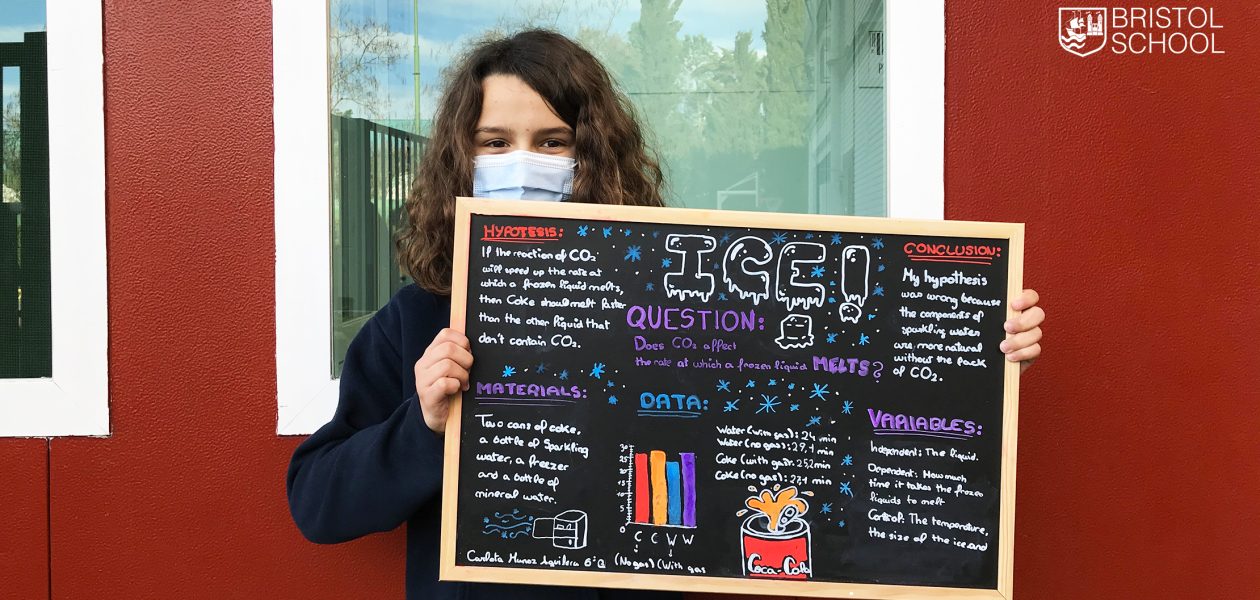 BRISTOL
SCHOOL
ICE!
HYPOTESIS:
If the reaction of CO₂
will speed up the rate at
which a frozen liquid melts,
then Coke should melt faster
than the other liquid that
don't contain CO₂.
QUESTION:
Does CO₂ affect
the rate at which a frozen liquid MELTS?
CONCLUSION:
My hypothesis
was wrong because
the components of
sparkling water
are more natural
without the pack
of CO₂.
MATERIALS:
Two cans of coke,
a bottle of Sparkling
water, a freezer
and a bottle of
mineral water.
DATA:
30
25
20
15
10
5
0
C C W W
(No gas) (With gas
Water (with gas): 24 min
Water (no gas): 27,1 min
Coke (with gas): 25,2 min
Coke (no gas): 27,1 min
Coca-Cola
VARIABLES:
Independent: The liquid.
Dependent: How much
time it takes the frozen
liquids to melt
Control: The temperature,
the size of the ice and
Carlota Munoz Aguilera 6ºQ